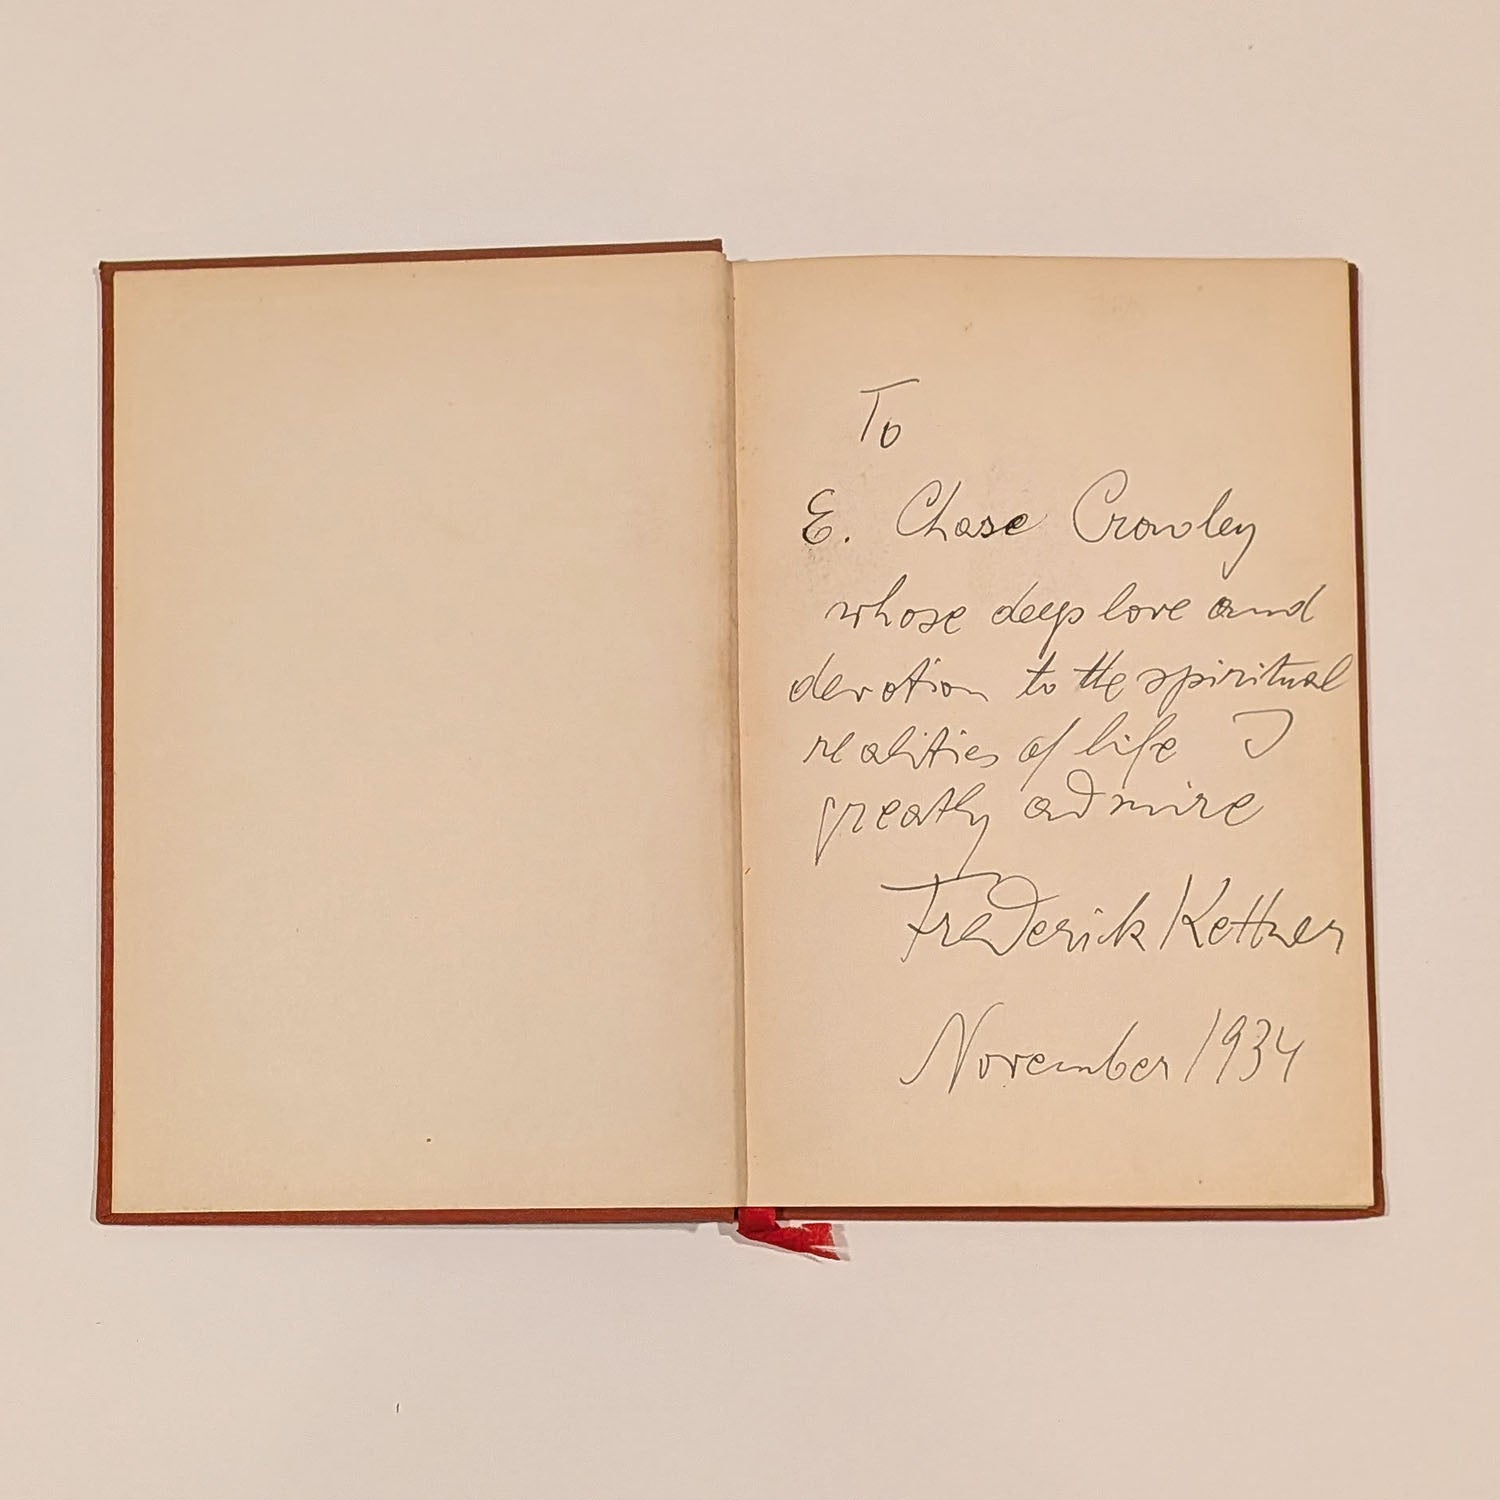 To
E. Chase Crowley
whose deep love and
devotion to the spiritual
realities of life I
greatly admire
Frederick Kettner
November 1934